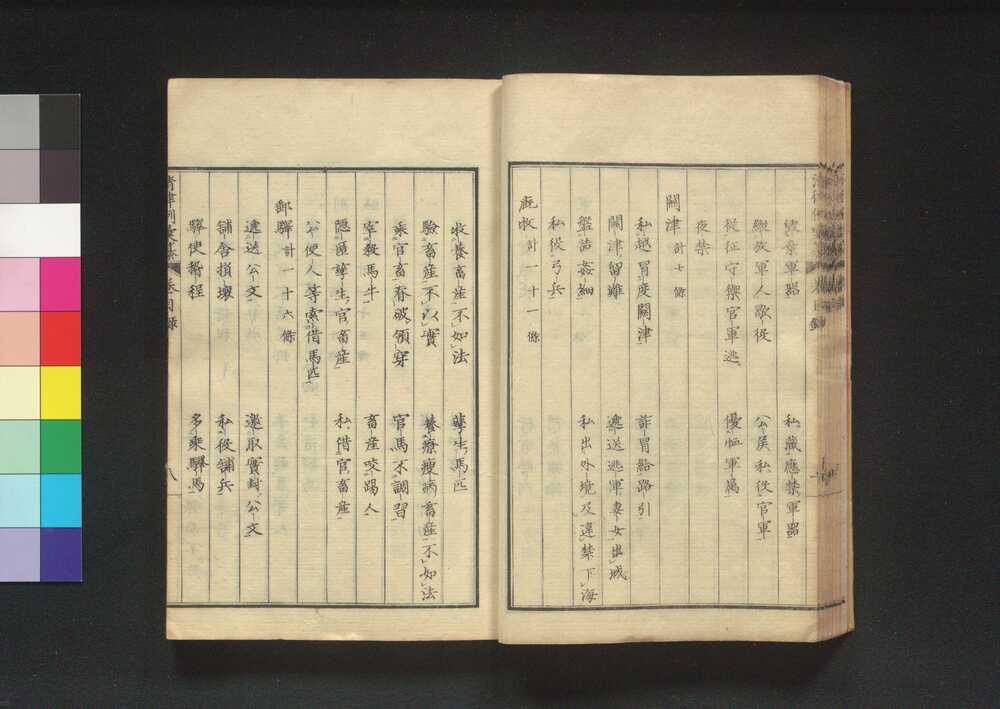 毀棄軍器　私藏應禁軍器
縱放軍人歇役　公侯私役官軍
從征守禦官軍逃　優恤軍屬
夜禁
關津計七條
私越冒度關津　詐冒給路引
關津留難　遞送逃軍妻女出城
盤詰姦細　私出外境及違禁下海
私役弓兵
廐牧計一十一條
牧養畜產不如法　孳生馬匹
驗畜產不以實　養療瘦病畜產不如法
乘官畜脊破領穿　官馬不調習
宰殺馬牛　畜產咬踢人
隱匿孳生官畜產　私借官畜產
公使人等索借馬匹
郵驛計一十六條
遞送公文　邀取實封公文
鋪舍損壞　私役鋪兵
驛使稽程　多乘驛馬
八